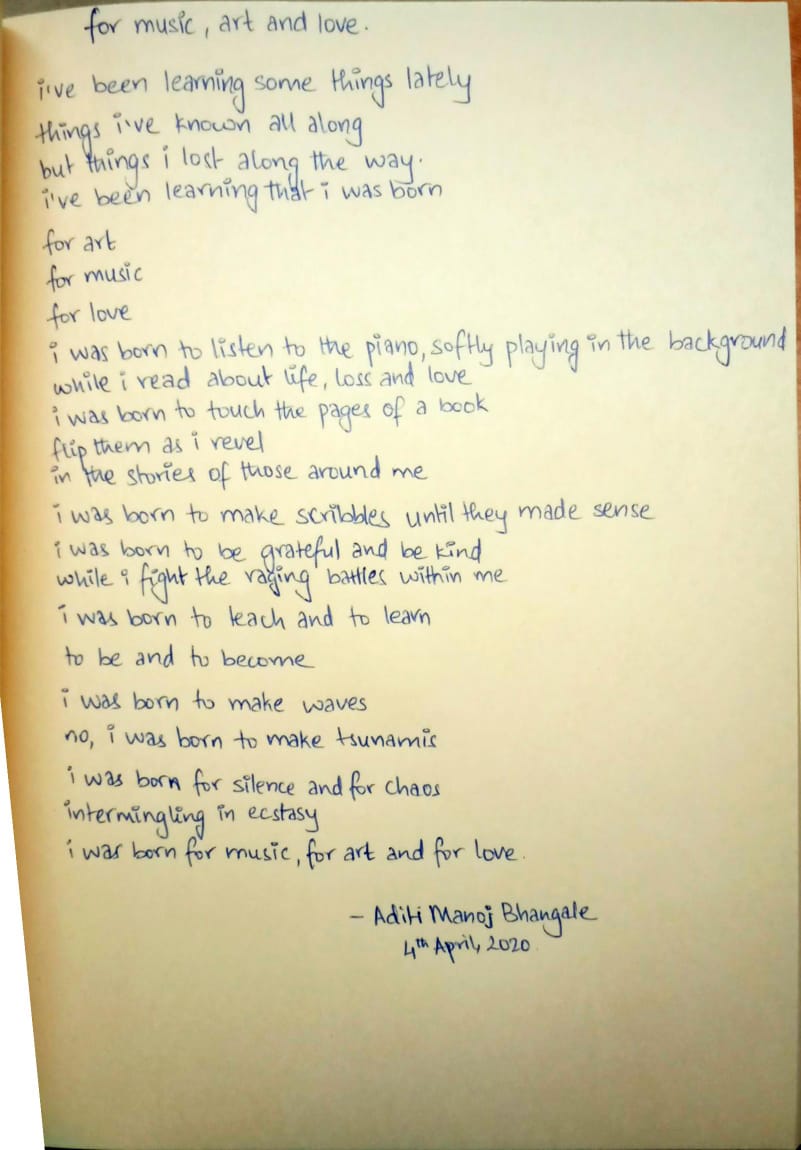 for music, art and love.
i've been learning some things lately
things i've known all along
but things i lost along the way.
i've been learning that i was born
for art
for music
for love
i was born to listen to the piano, softly playing in the background
while i read about life, loss and love
i was born to touch the pages of a book
flip them as i revel
in the stories of those around me
i was born to make scribbles until they made sense
i was born to be grateful and be kind
while i fight the raging battles within me
i was born to teach and to learn
to be and to become
i was born to make waves
no, i was born to make tsunamis
i was born for silence and for chaos
intermingling in ecstasy
i was born for music, for art and for love.
– Aditi Manoj Bhangale
4th April, 2020.